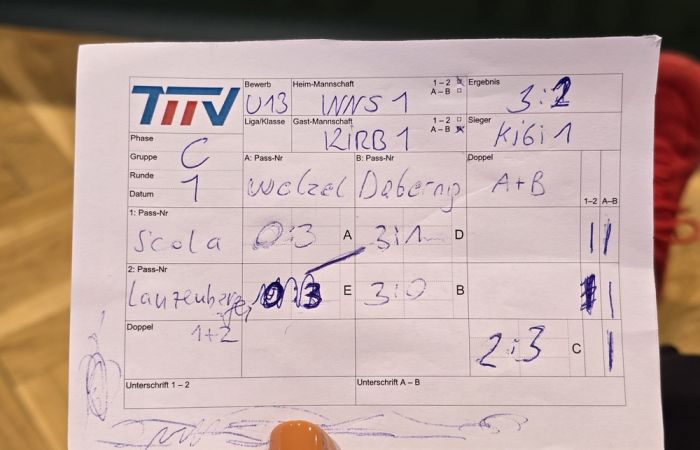 TTTV
Bewerb
U13
Heim-Mannschaft
WNS 1
1 – 2
A – B
Ergebnis
3:2
Liga/Klasse
Gast-Mannschaft
KIRB 1
1 – 2
A – B
Sieger
Kibi 1
Phase
Gruppe
C
Runde
1
Datum
A: Pass-Nr
Welzel
B: Pass-Nr
Doppel
A+B
1–2 A–B
1: Pass-Nr
Scola
0:3
A
3:1
D
2: Pass-Nr
0:3
E
3:0
B
Doppel
1+2
2:3
C
Unterschrift 1 – 2
Unterschrift A – B